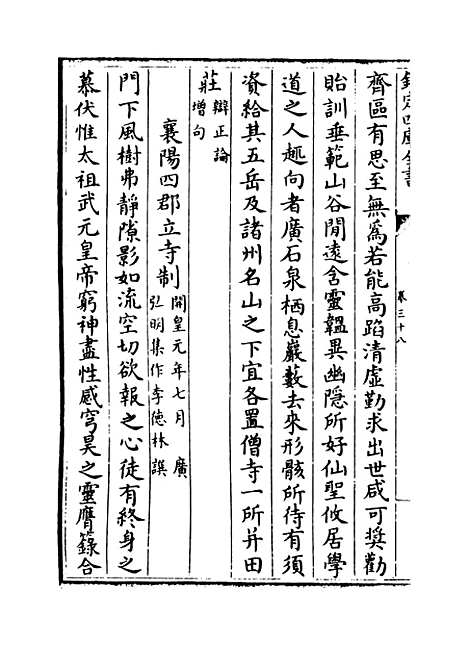 欽定四庫全書
卷三十八
齊區有思至無為若能高蹈清虛勤求出世咸可奬勸
貽訓垂範山谷閒逺含靈韞異幽隠所好仙聖攸居學
道之人趣向者廣石泉栖息巖藪去來形骸所待有須
資給其五岳及諸州名山之下宜各置僧寺一所并田
莊辯正論
增句
襄陽四郡立寺制開皇元年七月 廣
弘明集作李徳林譔
門下風樹弗靜隙影如流空切欲報之心徒有終身之
慕伏惟太祖武元皇帝窮神盡性感穹昊之靈膺籙合